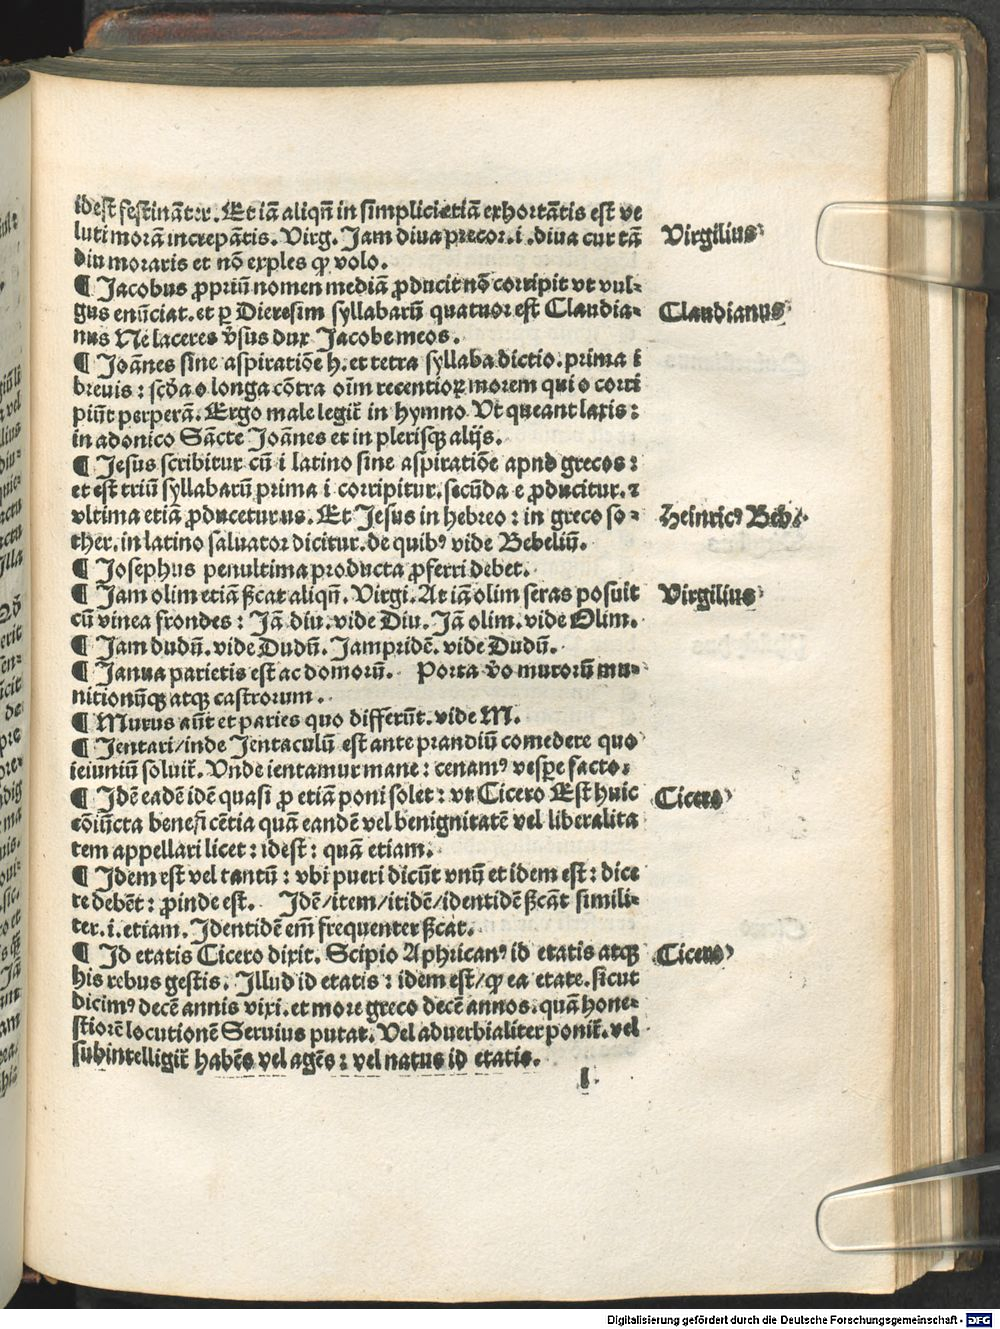 idest festinãter. Et iã aliqñ in simplici etiã exhortãtis est ve
luti morã increpãtis. Virg. Jam diua precor .i. diua cur tã
diu moraris et nõ exples qꝫ volo.
Virgilius
¶ Jacobus ꝓpriũ nomen mediã ꝓducit nõ corripit vt vul-
gus enũciat. et ꝑ Dieresim syllabarũ quatuor est Claudia-
nus Ne laceres v̄sus dux Jacobe meos.
Claudianus
¶ Joãnes sine aspiratiõe h. et tetra syllaba dictio. prima i
breuis : scḋa o longa cõtra oĩm recentioꝝ morem qui o corri
piũt perperã. Ergo male legit̃ in hymno Vt queant laxis :
in adonico Sãcte Joãnes et in plerisqꝫ alijs.
¶ Jesus scribitur cũ i latino sine aspiratiõe apud grecos :
et est triũ syllabarũ prima i corripitur. secũda e ꝓducitur. ⁊
vltima etiã ꝓducetur us. Et Jesus in hebreo : in greco so-
ther. in latino saluator dicitur. de quibꝰ vide Bebeliũ.
Heinricꝰ Beb.
¶ Josephus penultima producta ꝓferri debet.
¶ Jam olim etiã ßcat aliqñ. Virgi. At iã olim seras posuit
cũ vinea frondes : Jã diu. vide Diu. Jã olim. vide Olim.
Virgilius
¶ Jam dudũ. vide Dudũ. Jampridẽ. vide Dudũ.
¶ Janua parietis est ac domorũ. Porta v̄o murorũ mu-
nitionũqꝫ atqꝫ castrorum.
¶ Murus aũt et paries quo differũt. vide M.
¶ Jentari/inde Jentaculũ est ante prandiũ comedere quo
ieiuniũ soluit̃. Vnde ientamur mane : cenamꝰ vespe facto.
¶ Jdẽ eadẽ idẽ quasi ꝓ etiã poni solet : vt Cicero Est huic
cõiũcta beneficẽtia quã eandẽ vel benignitatẽ vel liberalita
tem appellari licet : idest : quã etiam.
Cicero
¶ Jdem est vel tantũ : vbi pueri dicũt vnũ et idem est : dice
re debẽt : ꝓinde est. Jdẽ/item/itidẽ/identidẽ ßcãt simili-
ter .i. etiam. Jdentidẽ em̃ frequenter ßcat.
¶ Jd etatis Cicero dixit. Scipio Aphricanꝰ id etatis atqꝫ
his rebus gestis. Jllud id etatis : idem est/qꝫ ea etate. sicut
dicimꝰ decẽ annis vixi. et more greco decẽ annos. quã hone-
stiorẽ locutionẽ Seruius putat. Vel aduerbialiter ponit̃. vel
subintelligit̃ habẽs vel agẽs : vel natus id etatis.
Cicero
I
Digitalisierung gefördert durch die Deutsche Forschungsgemeinschaft - DFG